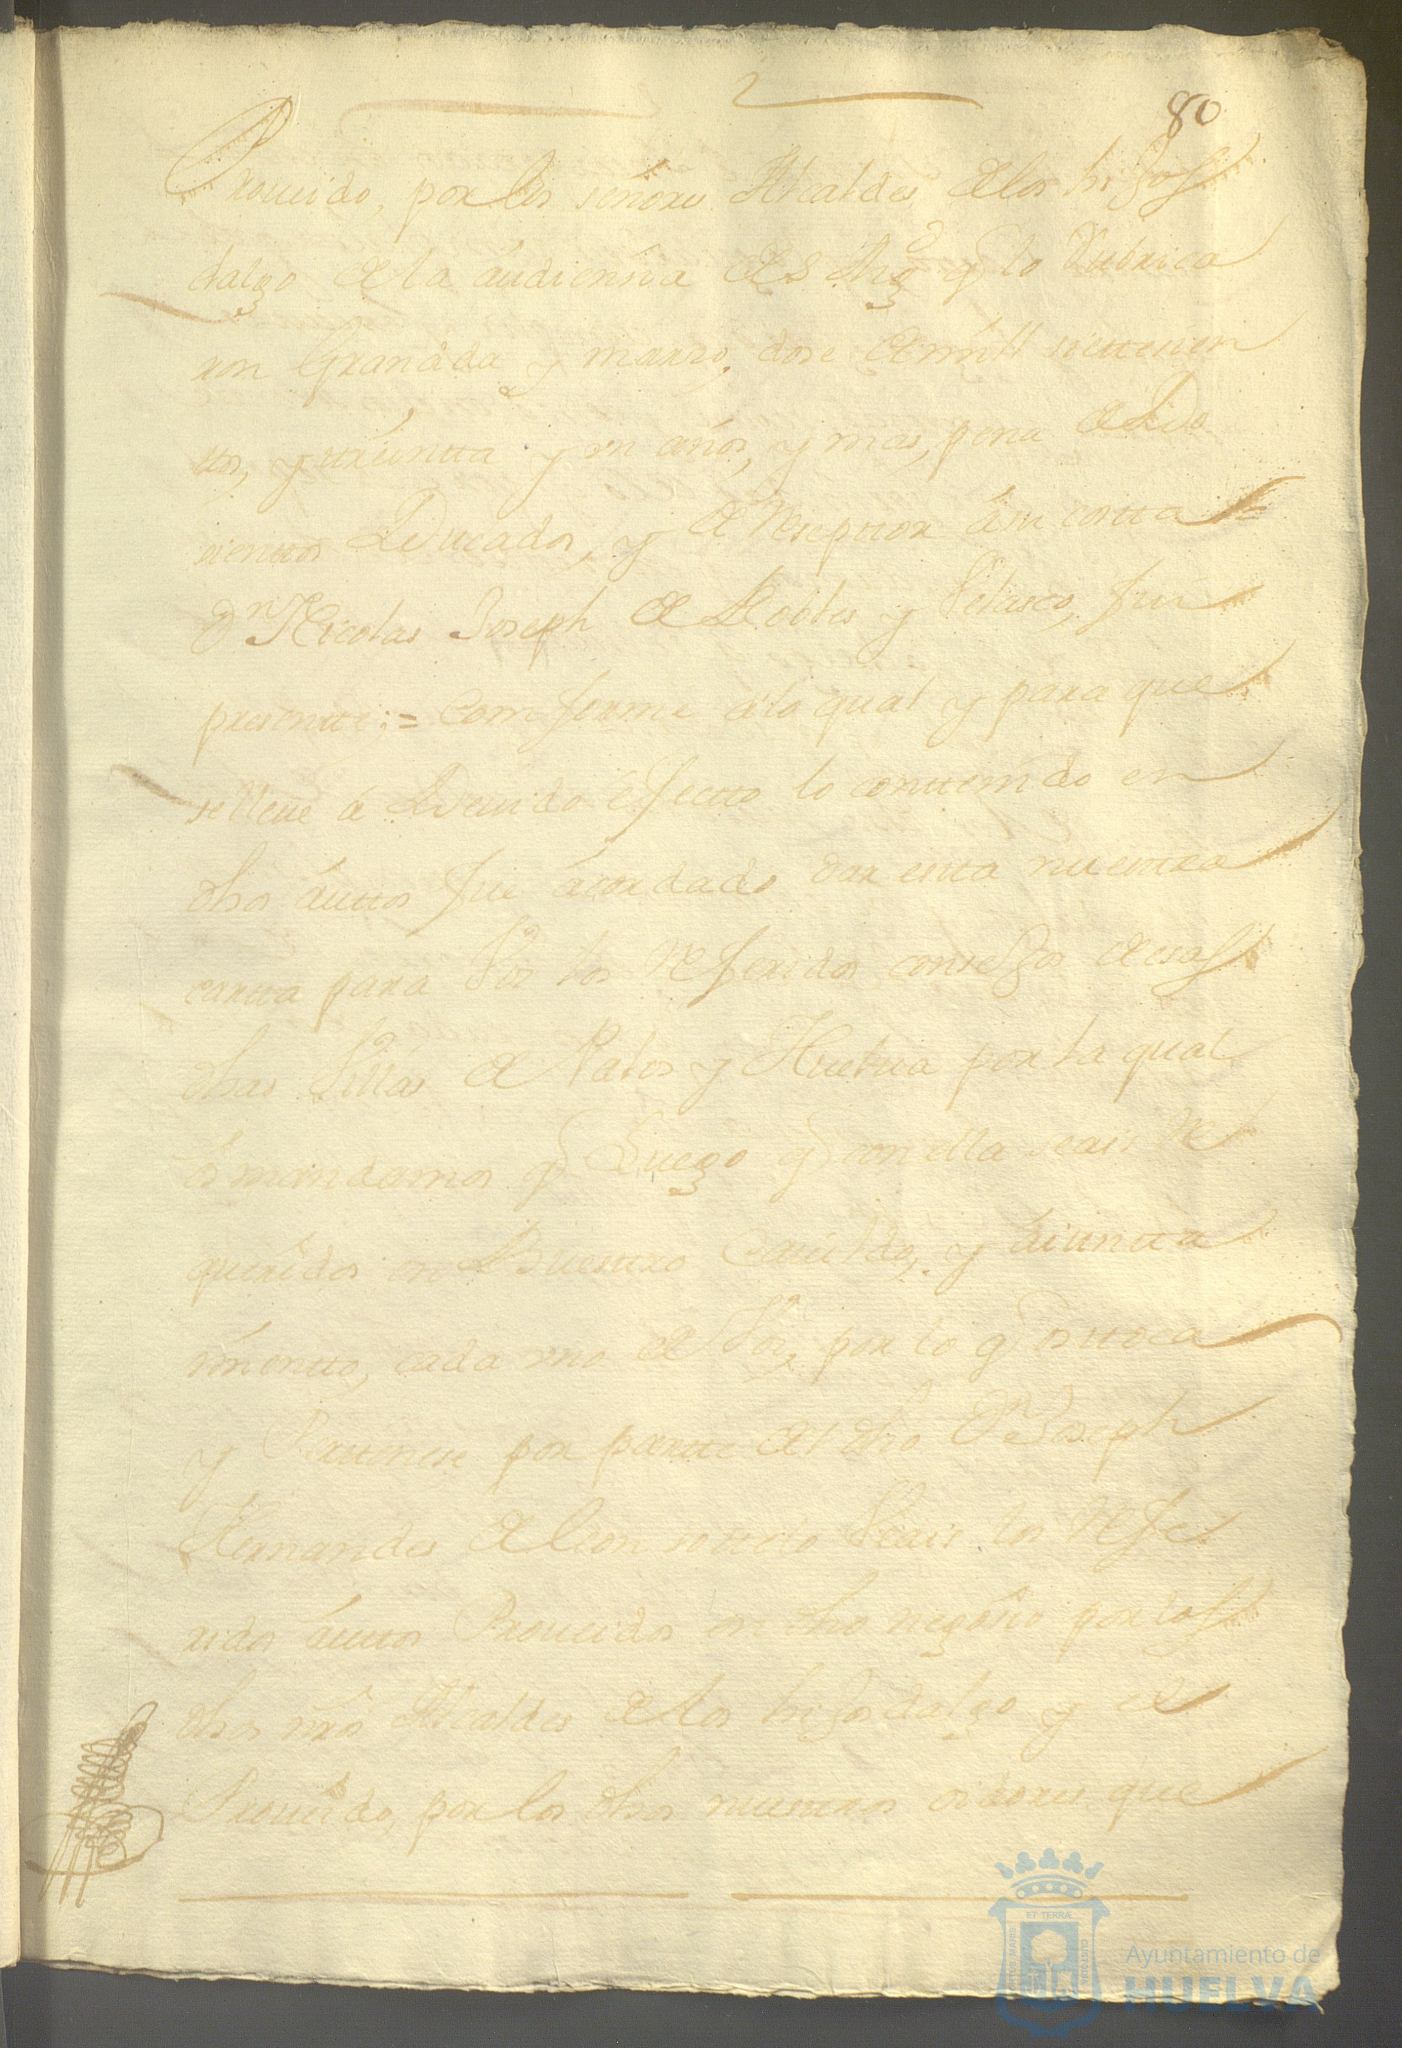 80
Proueido, por los señores Alcaldes de los hijos
dalgo de la áudiensia de S Mgd q̃ lo Rubrica
ron Granáda y marzo, dose de mill settesien
ttos, y treintta y un años, y mas, pena de Do
sienttos Ducados, y de Reseptтor á su costta
Dn Nicolas Joseph de Robles y Velasco, fui
presentte; = Comforme á lo qual y para que
se lleue á Deuido éfectto lo conttenido en
dhos áuttos fue ácordado dar estta nuestra
cartta para Vos los Referidos consejos de esas
dhas Villas de Palos y Huelua por la qual
ós mandamos q̃ Luego q̃ con ella seais Re
queridos en Buestro Cauildo, y áiuntta
miento, cada vno de Vos, por lo q̃ os ttoca
y Perttenese por partte del dho Dn Joseph
Hernandes de Leon sottelo Veais los Refe
ridos áuttos Proueidos en dho negosio por los
dhos nr̃os Alcaldes de los hijosdalgo y el
Proueido, por los dhos nuestros oidores que
Ayuntamiento de
HUELVA